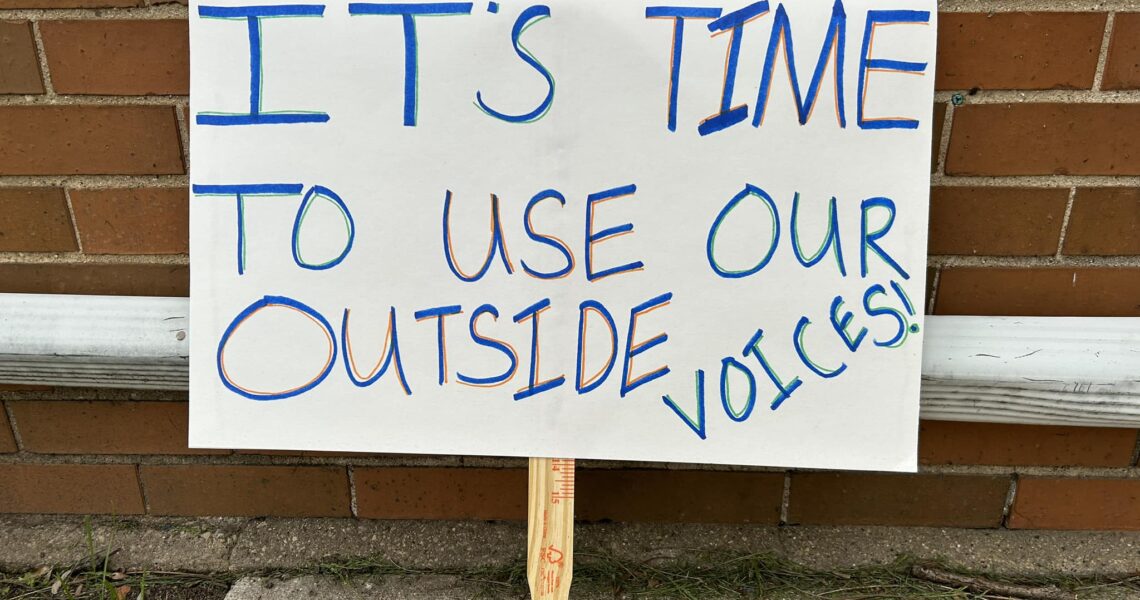 IT'S TIME
TO USE OUR
OUTSIDE VOICES!
14
15